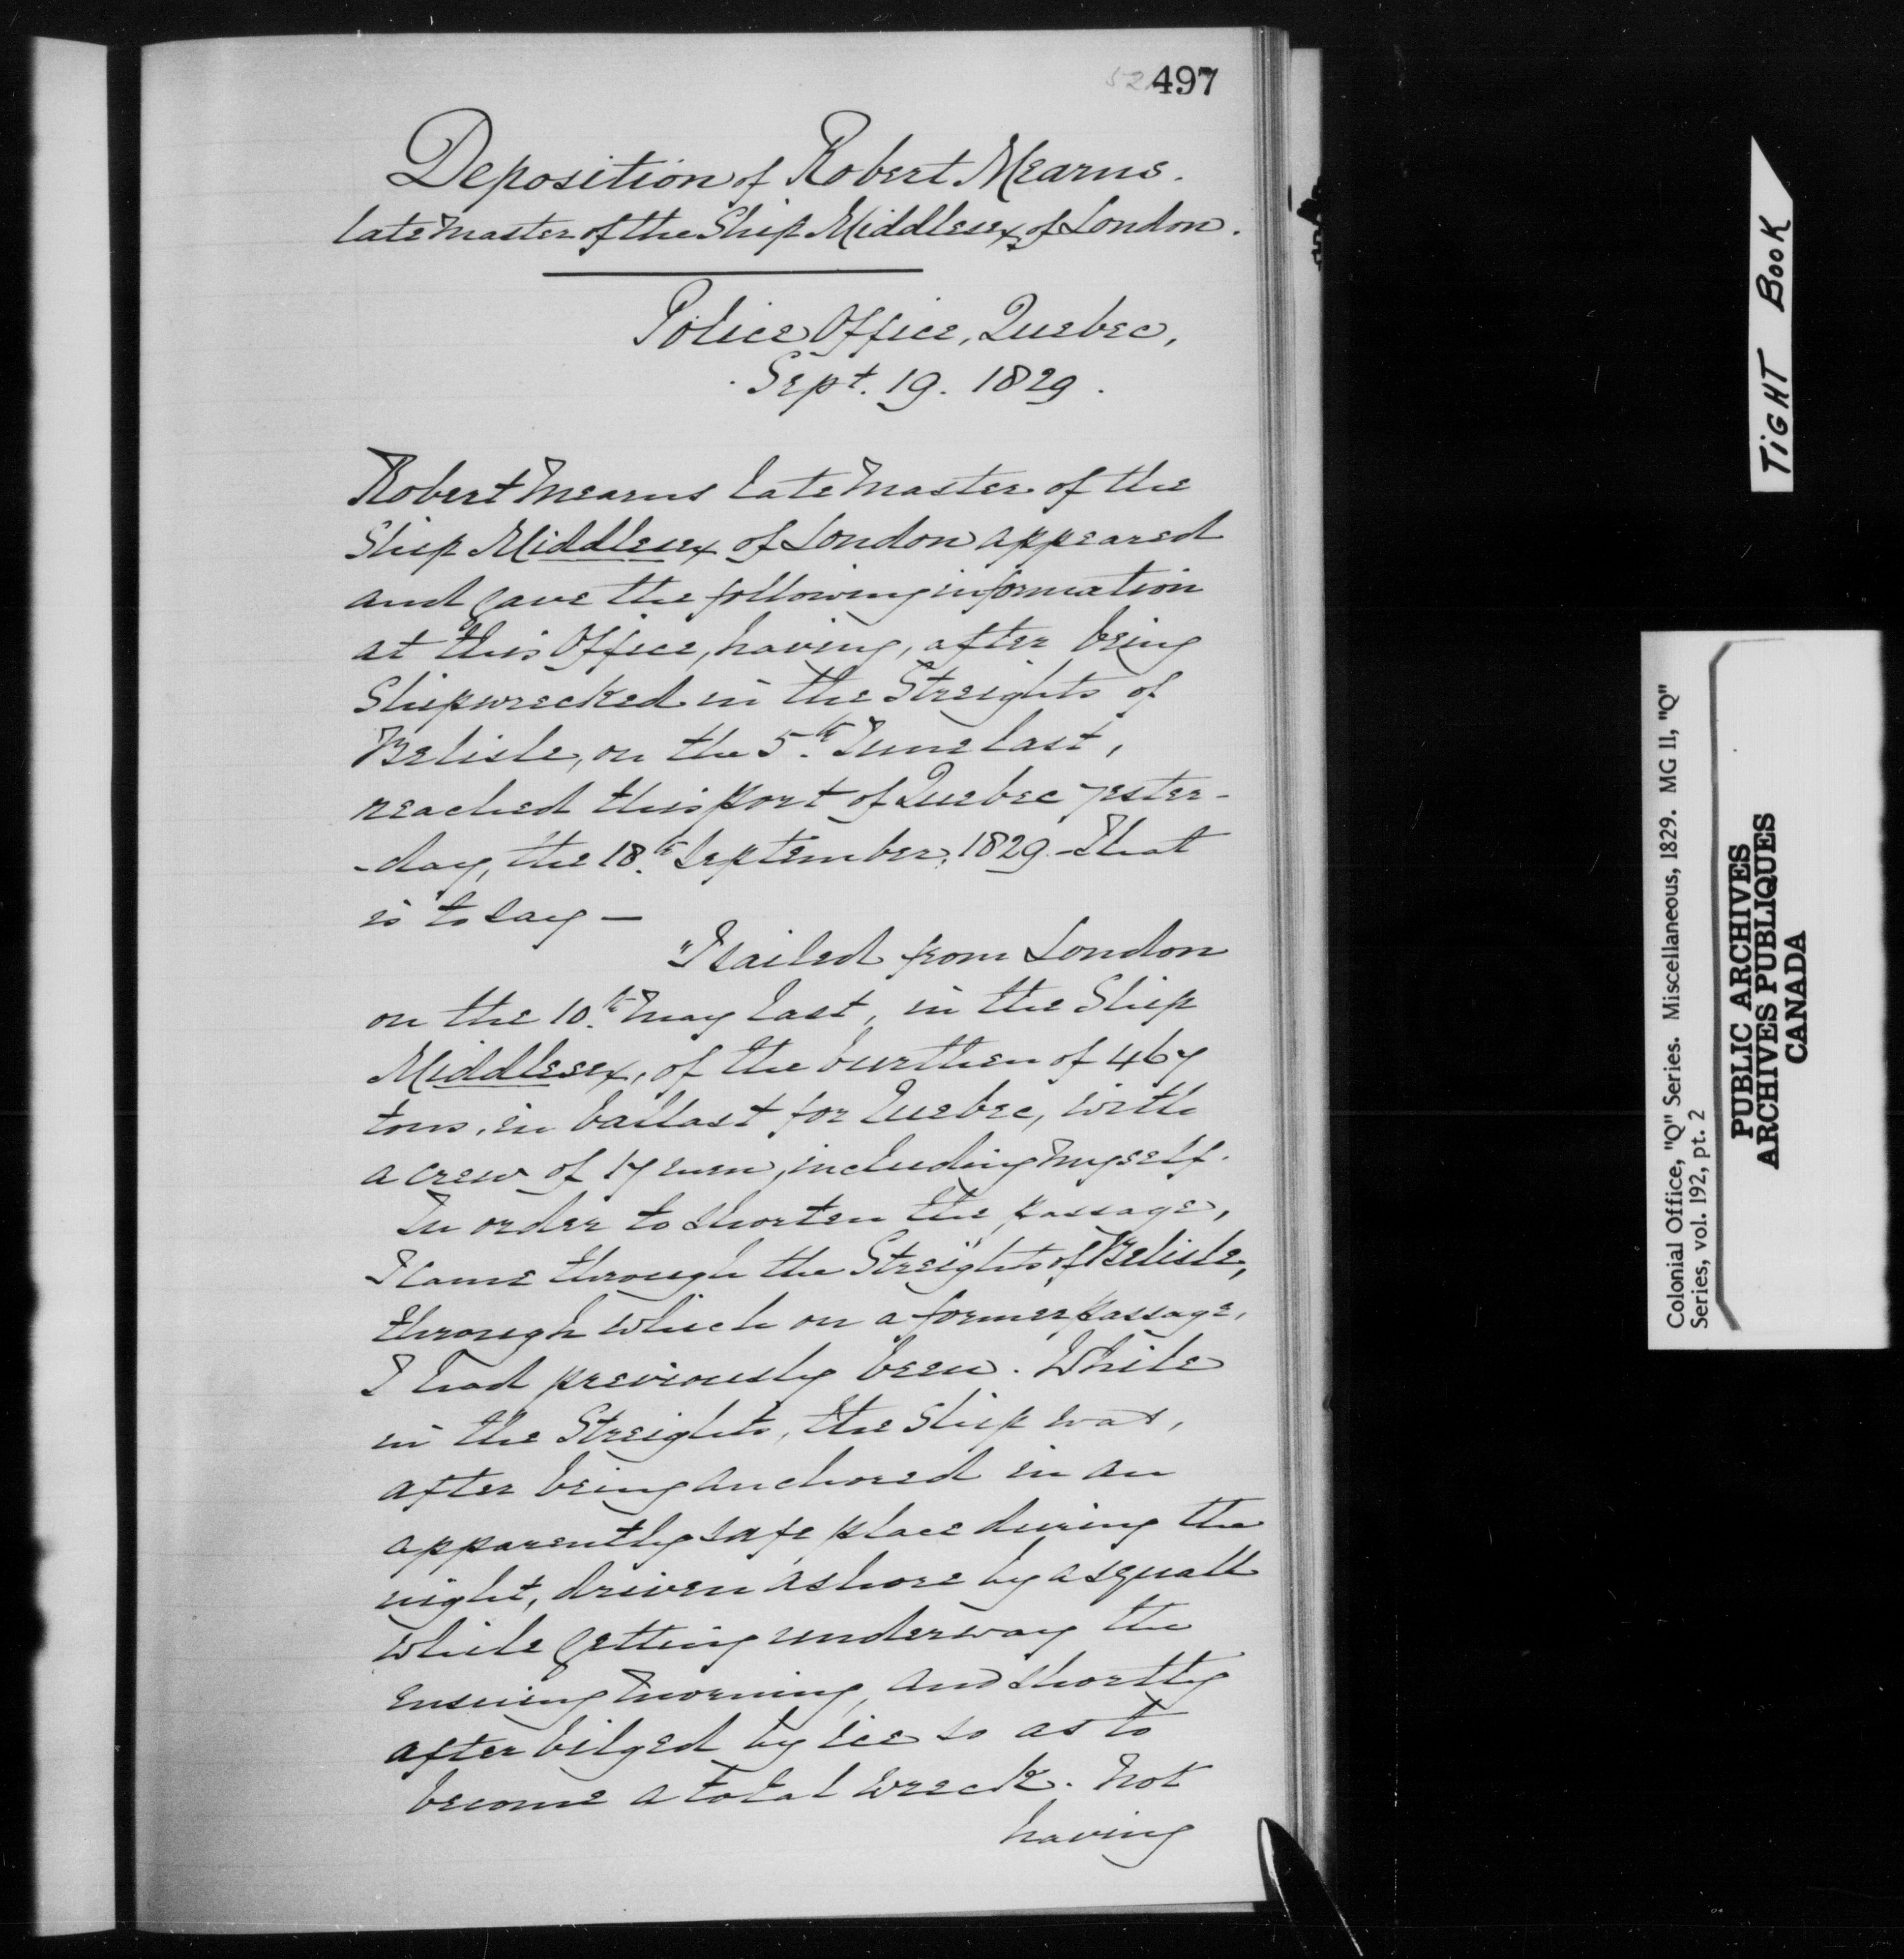 497
Deposition of Robert Mearns.
late Master of the Ship Middlesex of London.
Police Office, Quebec,
Sept. 19. 1829.
Robert Mearns late Master of the
Ship Middlesex of London appeared
and gave the following information
at this Office, having, after being
Shipwrecked in the Streights of
Belisle, on the 5th June last,
reached this Port of Quebec yester-
-day, the 18th September, 1829 - That
is to say —
"I sailed from London
on the 10th May last, in the Ship
Middlesex, of the burthen of 467
tons, in ballast for Quebec, with
a crew of 17 men, including myself.
In order to shorten the passage,
I came through the Streights of Belisle,
through which on a former passage,
I had previously been. While
in the Streights, the Ship was,
after being anchored in an
apparently safe place during the
night, driven ashore by a squall
while getting underway the
ensuing morning, and shortly
after bilged by ice so as to
become a total wreck. Not
having
TIGHT BOOK
Colonial Office, "Q" Series. Miscellaneous, 1829. MG 11, "Q"
Series, vol. 192, pt. 2
PUBLIC ARCHIVES
ARCHIVES PUBLIQUES
CANADA